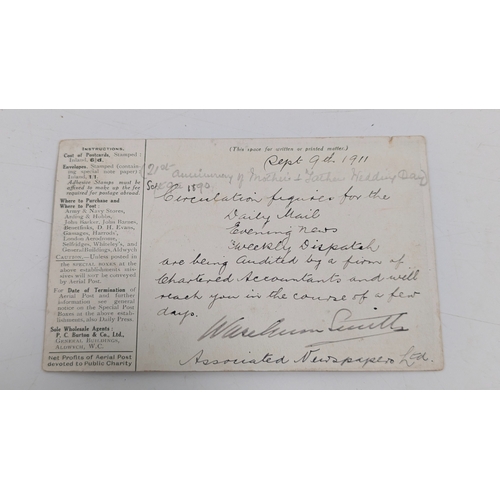 INSTRUCTIONS.
Cost of Postcards, Stamped
Inland, 6½d.
Envelopes, Stamped (contain-
ing special note paper)
Inland, 1/1.
Adhesive Stamps must be
affixed to make up the fee
required for postage abroad.
Where to Purchase and
Where to Post:
Army & Navy Stores,
Arding & Hobbs,
John Barker, John Barnes,
Benetfinks, D. H. Evans,
Gamages, Harrods',
London Aerodrome,
Selfridges, Whiteley's, and
General Buildings, Aldwych
CAUTION.—Unless posted in
the SPECIAL BOXES at the
above establishments mis-
sives will not be conveyed
by Aerial Post.
For Date of Termination of
Aerial Post and further
information see general
notice on the Special Post
Boxes at the above estab-
lishments, also Daily Press.
Sole Wholesale Agents:
F. C. Burton & Co., Ltd.,
GENERAL BUILDINGS,
ALDWYCH, W.C.
Net Profits of Aerial Post
devoted to Public Charity
(This space for written or printed matter.)
Sept 9th 1911
21st Anniversary of Mother & Father Wedding Day
1890
Circulation figures for the
Daily Mail
Evening News
& Weekly Dispatch
are being audited by a firm of
Chartered Accountants and will
reach you in the course of a few
days.
Smith
Associated Newspapers Ltd.